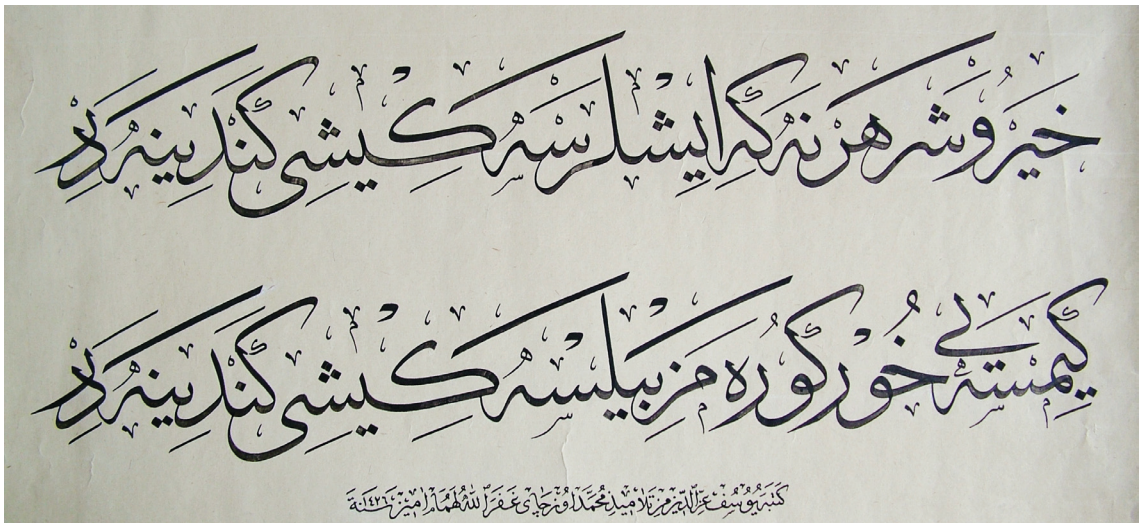 خير و شر هر نه كه ايشلرسه كيشى كندينه در
كيمسه يى خور كوره مز بيلسه كيشى كندينه در
كتبه يوسف عز الدين من تلاميذ محمد اوزجاى غفر الله لهما امين سنة ١٤٢٦